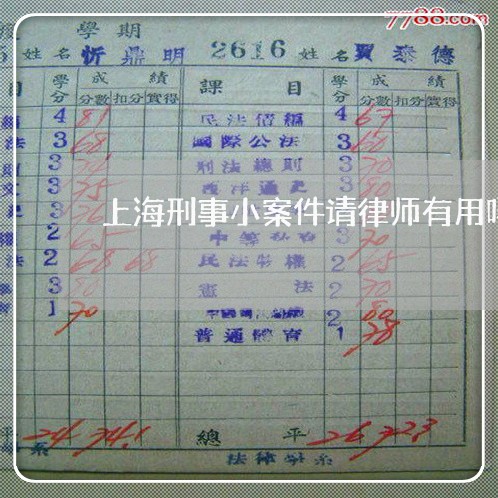 7788.com
學期
姓名 忻鼎明 2616 姓名 賈泰德
目 學分 成績 課目 學分 成績
分數 扣分 實得 分數 扣分 實得
4 81 民法債編 4 67
法 3 68 國際公法 3 60
3 刑法總則 3 70
3 75 西洋通史 80
上海刑事小案件请律师有用
2 65 中等 3 70
法 2 68 68 民法物權 2 65
3 80 憲法 2 70
1 70 2 80
普通體育 1 78
平 24 74.1 總平 26 72.3
系 法律學系